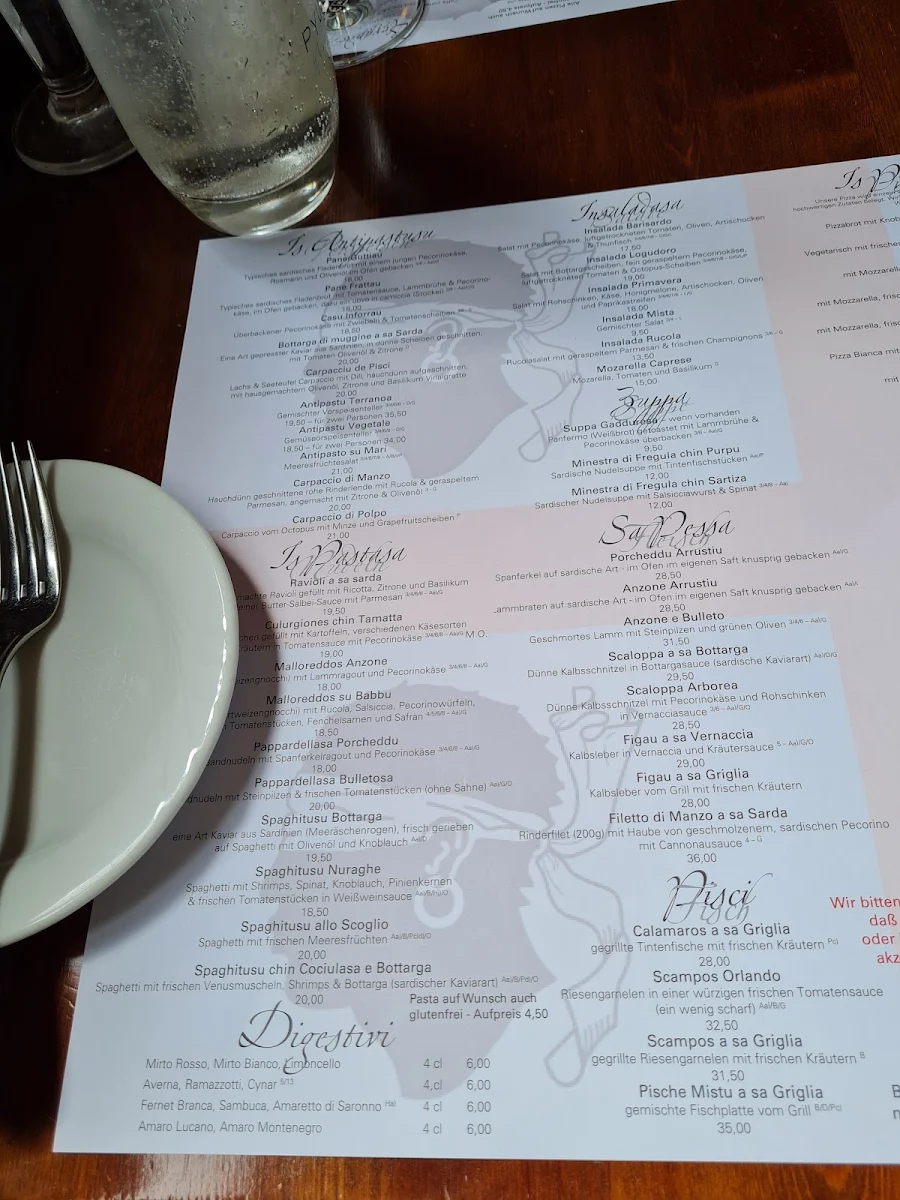 Is Antipastusu
Pane Guttiau
Typisches sardisches Fladenbrot mit einem jungen Pecorinokäse,
Rosmarin und Olivenöl im Ofen gebacken
16,00
Pane Frattau
Typisches sardisches Fladenbrot mit Tomatensauce, Lammbrühe & Pecorino-
käse, im Ofen gebacken, dazu ein uovo in camicia (Stocker)
18,00
Casu Inforrau
Überbackener Pecorinokäse mit Zwiebeln & Tomatenscheiben
18,50
Bottarga di muggine a sa Sarda
Eine Art gepresster Kaviar aus Sardinien, in dünne Scheiben geschnitten,
mit Tomaten Olivenöl & Zitrone
20,00
Carpacciu de Pisci
Lachs & Seeteufel Carpaccio mit Dill, hauchdünn aufgeschnitten,
mit hausgemachtem Olivenöl, Zitrone und Basilikum Vinaigrette
20,00
Antipastu Terranoa
Gemischter Vorspeisenteller
19,50 – für zwei Personen 35,50
Antipastu Vegetale
Gemüsevorspeisenteller
18,50 – für zwei Personen 34,00
Antipasto su Mari
Meeresfrüchtesalat
21,00
Carpaccio di Manzo
Hauchdünn geschnittene rohe Rinderlende mit Rucola & geraspeltem
Parmesan, angemacht mit Zitrone & Olivenöl
Carpaccio di Polpo
Carpaccio vom Octopus mit Minze und Grapefruitscheiben
21,00
Is Pastasa
Ravioli a sa sarda
machte Ravioli gefüllt mit Ricotta, Zitrone und Basilikum
einer Butter-Salbei-Sauce mit Parmesan
19,50
Culurgiones chin Tamatta
chen gefüllt mit Kartoffeln, verschiedenen Käsesorten
räutern in Tomatensauce mit Pecorinokäse M.O.
19,00
Malloreddos Anzone
eizengnocchi) mit Lammragout und Pecorinokäse
18,00
Malloreddos su Babbu
rtweizengnocchi) mit Rucola, Salsiccia, Pecorinowürfeln,
Tomatenstücken, Fenchelsamen und Safran
18,50
Pappardellasa Porcheddu
andnudeln mit Spanferkelragout und Pecorinokäse
18,00
Pappardellasa Bulletosa
dnudeln mit Steinpilzen & frischen Tomatenstücken (ohne Sahne)
20,00
Spaghitusu Bottarga
eine Art Kaviar aus Sardinien (Meeräschenrogen), frisch gerieben
auf Spaghetti mit Olivenöl und Knoblauch
19,50
Spaghitusu Nuraghe
Spaghetti mit Shrimps, Spinat, Knoblauch, Pinienkernen
& frischen Tomatenstücken in Weißweinsauce
18,50
Spaghitusu allo Scoglio
Spaghetti mit frischen Meeresfrüchten
20,00
Spaghitusu chin Cociulasa e Bottarga
Spaghetti mit frischen Venusmuscheln, Shrimps & Bottarga (sardischer Kaviarart)
20,00
Pasta auf Wunsch auch
glutenfrei - Aufpreis 4,50
Digestivi
Mirto Rosso, Mirto Bianco, Limoncello 4 cl 6,00
Averna, Ramazzotti, Cynar 5/13 4,cl 6,00
Fernet Branca, Sambuca, Amaretto di Saronno 4 cl 6,00
Amaro Lucano, Amaro Montenegro 4 cl 6,00
Insaladasa
Insalada Barisardo
Salat mit Pecorinokäse, luftgetrockneten Tomaten, Oliven, Artischocken
& Thunfisch
17,50
Insalada Logudoro
Salat mit Bottargascheiben, fein geraspeltem Pecorinokäse,
luftgetrockneten Tomaten & Octopus-Scheiben
19,00
Insalada Primavera
Salat mit Rohschinken, Käse, Honigmelone, Artischocken, Oliven
und Paprikastreifen
18,00
Insalada Mista
Gemischter Salat
9,50
Insalada Rucola
Rucolasalat mit geraspeltem Parmesan & frischen Champignons
13,50
Mozarella Caprese
Mozarella, Tomaten und Basilikum
15,00
Zuppa
Suppa Gadduresa – wenn vorhanden
Panfermo (Weißbrot) getoastet mit Lammbrühe &
Pecorinokäse überbacken
9,50
Minestra di Fregula chin Purpu
Sardische Nudelsuppe mit Tintenfischstücken
12,00
Minestra di Fregula chin Sartiza
Sardischer Nudelsuppe mit Salsicciawurst & Spinat
12,00
Sa Pessa
Fleisch
Porcheddu Arrustiu
Spanferkel auf sardische Art - im Ofen im eigenen Saft knusprig gebacken
28,50
Anzone Arrustiu
Lammbraten auf sardische Art - im Ofen im eigenen Saft knusprig gebacken
28,50
Anzone e Bulleto
Geschmortes Lamm mit Steinpilzen und grünen Oliven
31,50
Scaloppa a sa Bottarga
Dünne Kalbsschnitzel in Bottargasauce (sardische Kaviarart)
29,50
Scaloppa Arborea
Dünne Kalbsschnitzel mit Pecorinokäse und Rohschinken
in Vernacciasauce
28,50
Figau a sa Vernaccia
Kalbsleber in Vernaccia und Kräutersauce
29,00
Figau a sa Griglia
Kalbsleber vom Grill mit frischen Kräutern
28,00
Filetto di Manzo a sa Sarda
Rinderfilet (200g) mit Haube von geschmolzenem, sardischen Pecorino
mit Cannonausauce
36,00
Pisci
Fisch
Calamaros a sa Griglia
gegrillte Tintenfische mit frischen Kräutern
28,00
Scampos Orlando
Riesengarnelen in einer würzigen frischen Tomatensauce
(ein wenig scharf)
32,50
Scampos a sa Griglia
gegrillte Riesengarnelen mit frischen Kräutern
31,50
Pische Mistu a sa Griglia
gemischte Fischplatte vom Grill
35,00
Unsere Pizza wird
hochwertigen Zutaten belegt.
Pizzabrot mit Knob
Vegetarisch mit frische
mit Mozzarella
mit Mozzarella, frisc
mit Mozzarella, frisc
Pizza Bianca mit
mit
Wir bitten
daß
oder
akz